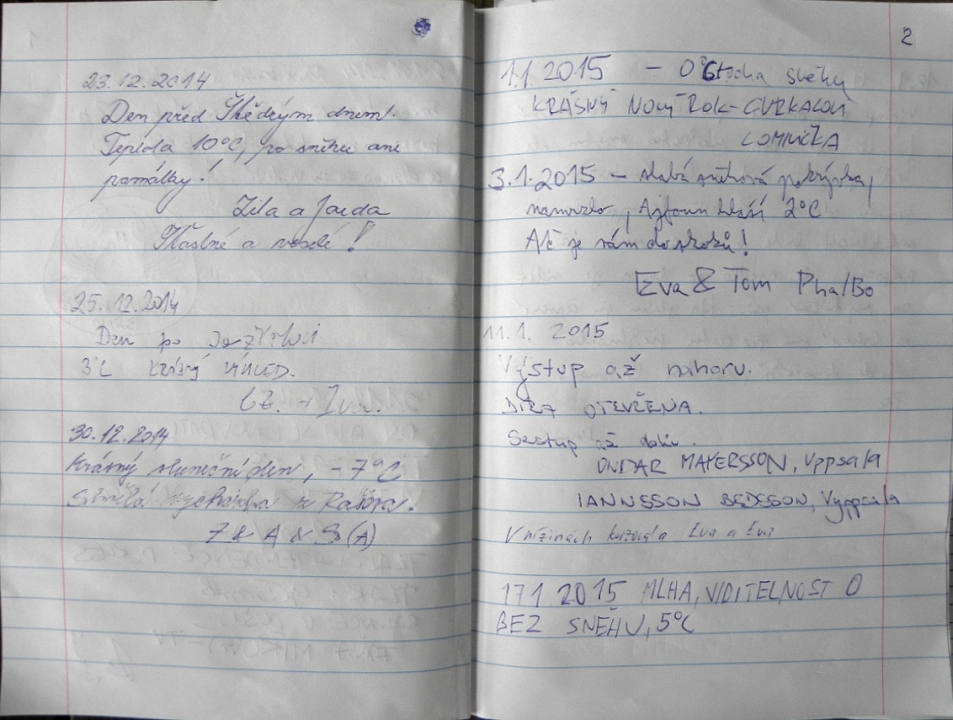 23.12.2014
Den před Štědrým dnem!
Teplota 10°C, po sněhu ani
památky!
Zila a Jarda
Šťastné a veselé!
25.12.2014
Den po
3°C krásný VÝHLED.
+ Iva.
30.12.2014
Krásný sluneční den, -7°C
vycházka z
7 & A & S(A)
2
1.1.2015 - 0°C trocha sněhu
KRÁSNÝ NOVÝ ROK-
LOMNIČKA
3.1.2015 - slabá sněhová pokrývka,
namrzlo, Ajfoun hlásí 2°C
Ať je vám do skoku!
Eva & Tom Pha/Bo
11.1. 2015
Výstup až nahoru.
DÍRA OTEVŘENA.
Sestup až dolů.
ONDAR MAYERSSON, Uppsala
IANNSSON BEDSSON, Vyppsala
V nížinách Eva a Eva
17 1 2015 MLHA, VIDITELNOST 0
BEZ SNĚHU, 5°C